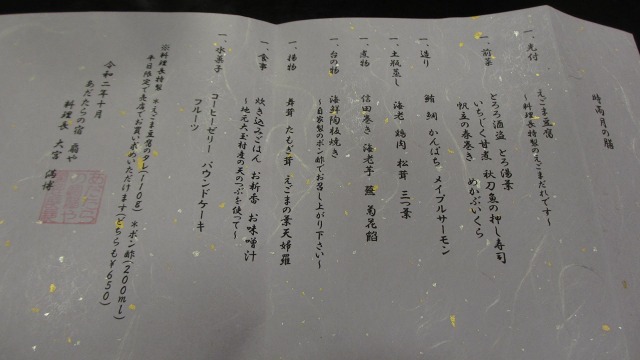 時雨月の膳
一、先付
えごま豆腐
～料理長特製のえごまだれです～
一、前菜
とろろ酒盗 とろ湯葉
いちじく甘煮 秋刀魚の押し寿司
帆立の春巻き めかぶいくら
一、造り
鮪 鯛 かんぱち メイプルサーモン
一、土瓶蒸し
海老 鶏肉 松茸 三つ葉
一、煮物
信田巻き 海老芋 蕪 菊花餡
一、台の物
海鮮陶板焼き
～自家製のポン酢でお召し上がり下さい～
一、揚物
舞茸 たもぎ茸 えごまの葉天婦羅
一、食事
炊き込みごはん お新香 お味噌汁
～地元大玉村産の天のつぶを使って～
一、水菓子
コーヒーゼリー パウンドケーキ
フルーツ
※料理長特製 ＊えごま豆腐のタレ(110g) ＊ポン酢(200ml)
平日限定で売店でお買い求めいただけます(どちらも￥650)
令和二年十月
あだたらの宿 扇や
料理長 大宮 満博